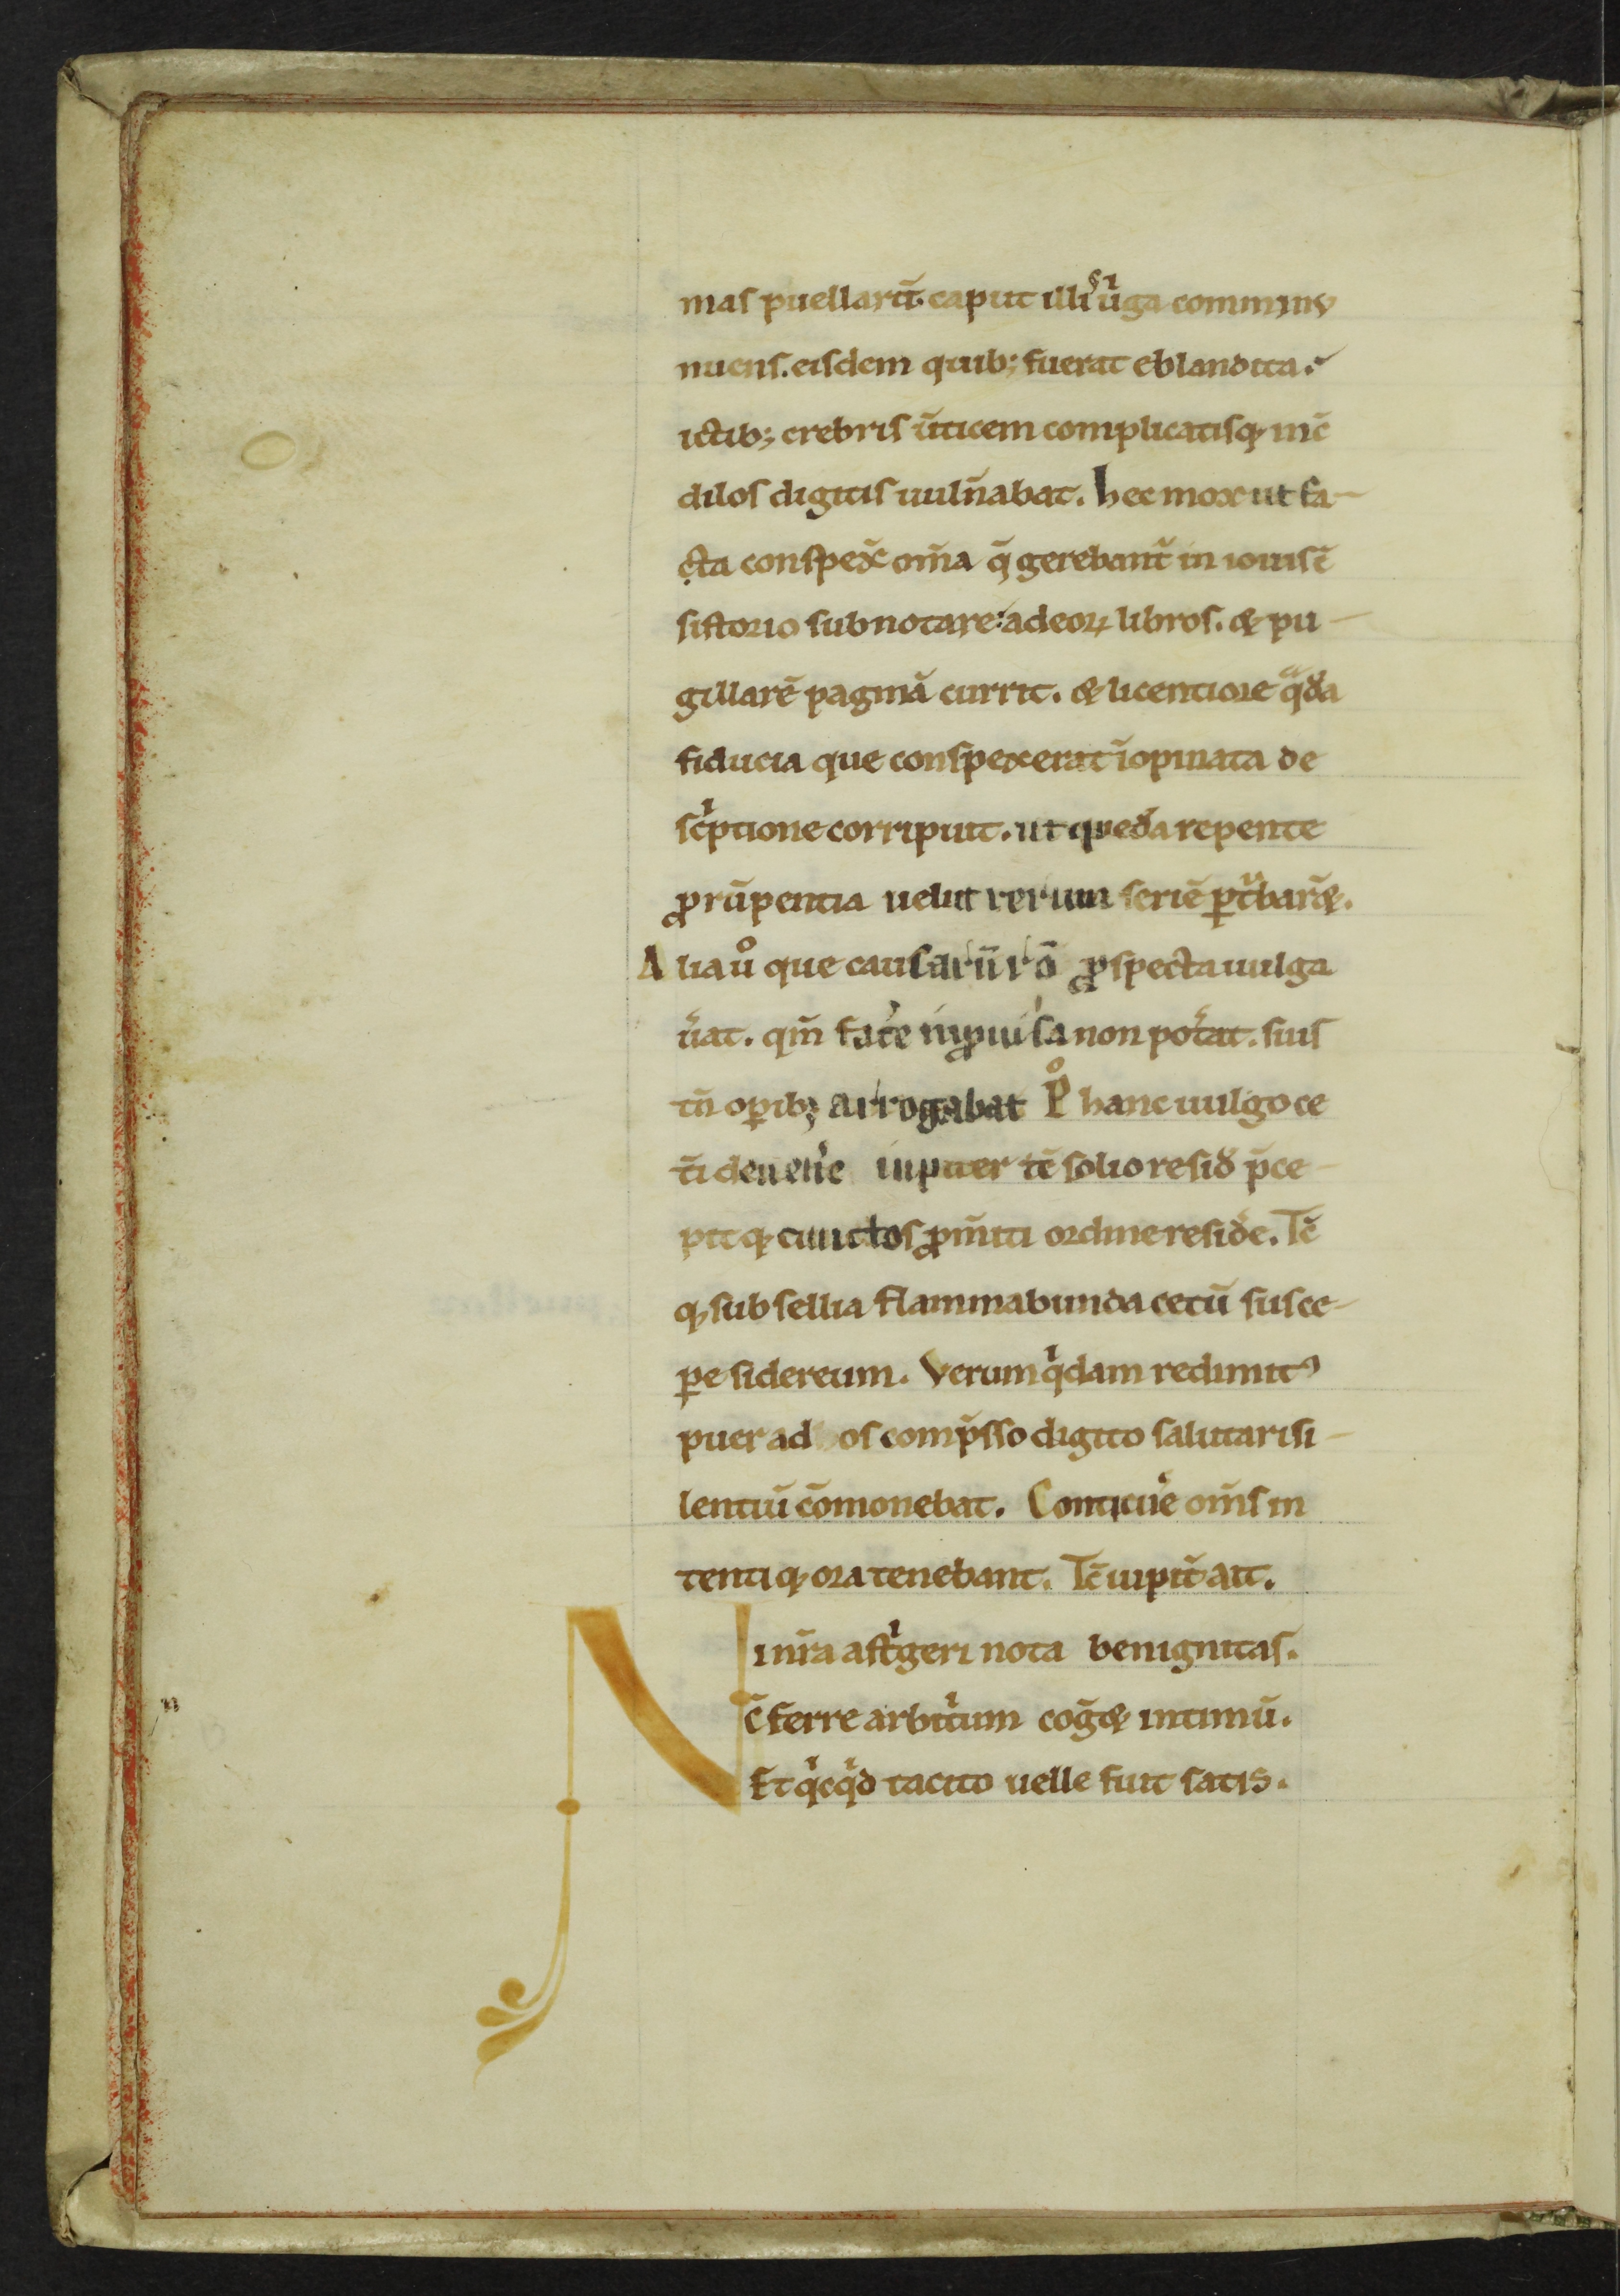 mas puellarū. caput illiꝰ ũga comminꝰ
nuens. eisdem quib; fuerat eblandita.
ictib; crebris ũticem complicatisq; me
dilos digitis uulñabat. hec mox ut fa-
cta conspex̃ om̃a q̃ gerebant̃ in iouis c̃
sistorio subnotare: adeoꝝ libros. & pu-
gillarẽ paginã currit. & licentiore q̃da
fiducia que conspexerat ĩopinata de
sc'ptione corripuit. ut queda repente
ꝓrũpentia uelut rerum seriẽ ꝑt̃bar&̃.
Alia uͦ que causarũ rõ ꝓspecta uulga
ũat. qm̃ fac̃e iꝓuisa non pot̃at. suis
tñ oꝑib; arrogabat Pͦ hanc uulgo ce
t̃i deuen̾e iupiter tc̃ solio resid̾ p̃ce-
pitq; cunctos ꝓm̃iti ordine resid̾e. Tc̃
q; subsellia flammabunda cetũ susce-
ꝑe sidereum. Verum qͥdam redimitꝰ
puer ad os comp̃sso digito salutari si-
lentiũ cõmonebat. Conticue̾ om̃s in
tentiq; ora tenebant. Tc̃ iupit̃ ait.
Ni nr̃a astͥgeri nota benignitas.
c̃ferre arbitͥum cog̃& intimũ.
Et qͥcqͥd tacito uelle fuit satis.
n